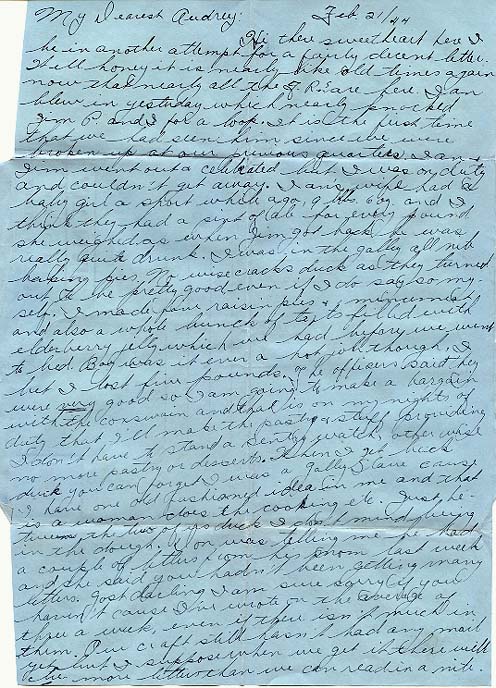 My Dearest Audrey: Feb 21/44
Hi there sweetheart here I
be in another attempt for a fairly decent letter.
Well honey it is nearly like old times again
now that nearly all the are here. Ian
blew in yesterday which nearly knocked
Jim P and I for a loop. It is the first time
that we had seen him since we were
broken up at our previous quarters. Ian &
Jim went out a celebrated but I was on duty
and couldn't get away. Ians wife had a
baby girl a short while ago, 9 lbs. 6 oz and I
think they had a pint of ale for every pound
she weighed as when Jim got back he was
really quite drunk. I was in the galley all nite
baking pies. No wisecracks duck as they turned
out to be pretty good even if I do say so my
self. I made four raisin pies & mincemeat
and also a whole bunch of tarts filled with
elderberry jelly which we had before we went
to bed. Boy was it ever a hot job though. I
bet I lost five pounds. The officers said they
were very good so I am going to make a bargain
with the coxswain and that is on my nights of
duty that I'll make the pastry & stuff providing
I don't have to stand a sentry watch, other wise
no more pastry or desserts. When I get back
duck you can forget I was a Gally Slave cause
I have one old fashioned idea in me and that
is a woman does the cooking etc. Just be-
tween the two of us duck I don't mind being
in the dough. Don was telling me he had
a couple of letters from his mom last week
and she said you hadn't been getting many
letters. Gosh darling I am sure sorry if you
haven't cause I've wrote on the average of
three a week, even if there isn't much in
them. Our craft still hasn't had any mail
yet but I suppose when we get it there will
be more letters than we can read in a nite.